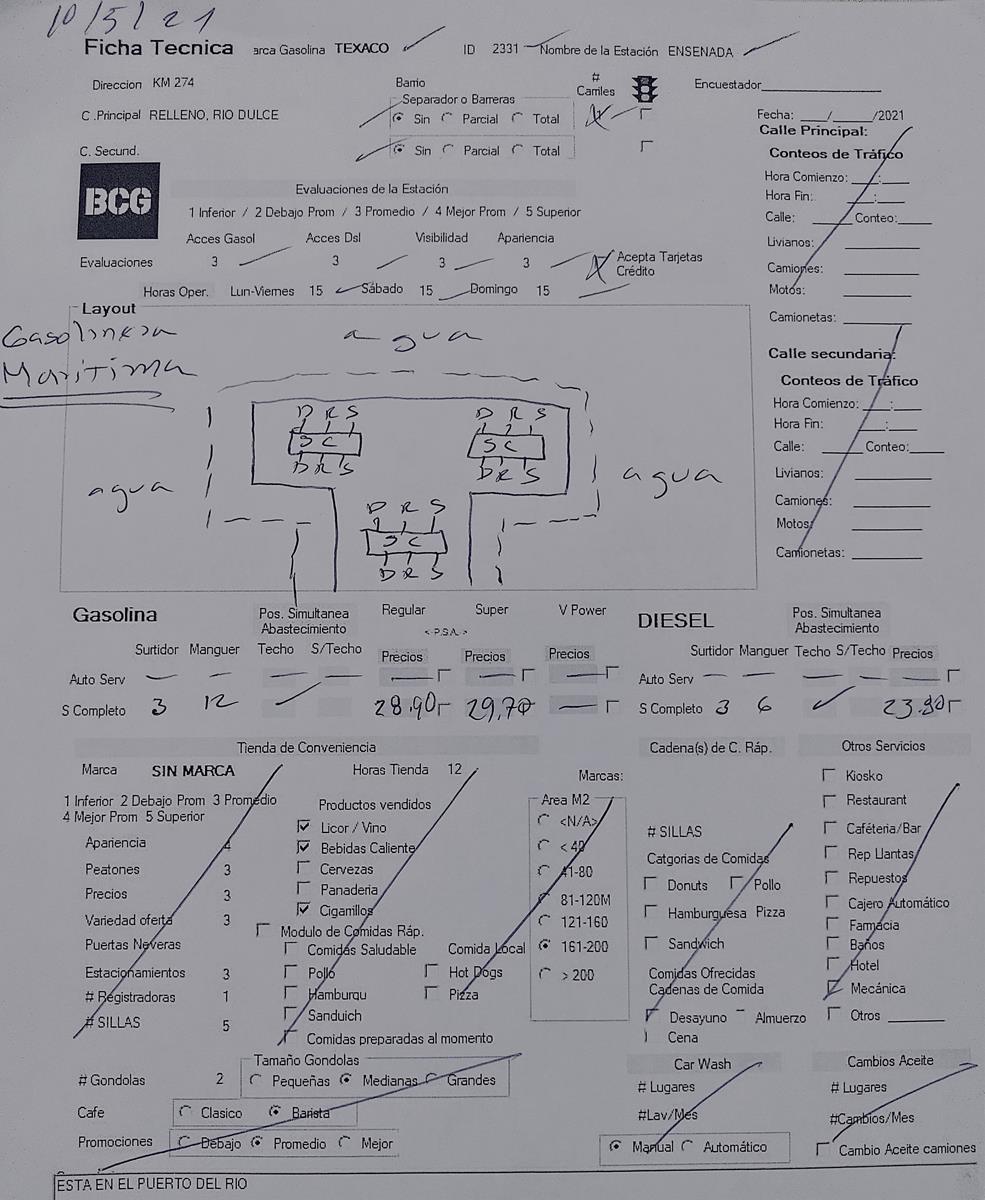 10/5/21
Ficha Tecnica arca Gasolina TEXACO ID 2331 Nombre de la Estación ENSENADA
Direccion KM 274 Barrio # Carriles Encuestador
Separador o Barreras
C .Principal RELLENO, RIO DULCE Sin Parcial Total Fecha: ___/___/2021
C. Secund. Sin Parcial Total
BCG
Evaluaciones de la Estación
1 Inferior / 2 Debajo Prom / 3 Promedio / 4 Mejor Prom / 5 Superior
Acces Gasol Acces Dsl Visibilidad Apariencia
Evaluaciones 3 3 3 3 Acepta Tarjetas Crédito
Horas Oper. Lun-Viernes 15 Sábado 15 Domingo 15
Calle Principal:
Conteos de Tráfico
Hora Comienzo: ___:___
Hora Fin: ___:___
Calle: ____ Conteo:____
Livianos:
Camiones:
Motos:
Camionetas:
Calle secundaria:
Conteos de Tráfico
Hora Comienzo: ___:___
Hora Fin: ___:___
Calle: ____ Conteo:____
Livianos:
Camiones:
Motos:
Camionetas:
Layout
Gasolinera
Maritima
agua
D R S D R S
S C S C
D R S D R S
agua agua
D R S
S C
D R S
Gasolina
Pos. Simultanea Abastecimiento Regular Super V Power
< P.S.A. >
Surtidor Manguer Techo S/Techo Precios Precios Precios
Auto Serv — — — — — — —
S Completo 3 12 ✓ 28.90 29.70 —
DIESEL
Pos. Simultanea Abastecimiento
Surtidor Manguer Techo S/Techo Precios
Auto Serv — — — — —
S Completo 3 6 ✓ 23.80
Tienda de Conveniencia
Marca SIN MARCA Horas Tienda 12
1 Inferior 2 Debajo Prom 3 Promedio
4 Mejor Prom 5 Superior
Apariencia 4
Peatones 3
Precios 3
Variedad oferta 3
Puertas Neveras
Estacionamientos 3
# Registradoras 1
# SILLAS 5
Productos vendidos
Licor / Vino
Bebidas Caliente
Cervezas
Panaderia
Cigarrillos
Modulo de Comidas Ráp.
Comidas Saludable Comida Local
Pollo Hot Dogs
Hamburqu Pizza
Sanduich
Comidas preparadas al momento
Marcas:
Area M2
<N/A>
< 40
41-80
81-120M
121-160
161-200
> 200
Cadena(s) de C. Ráp.
# SILLAS
Catgorias de Comidas
Donuts Pollo
Hamburguesa Pizza
Sandwich
Comidas Ofrecidas
Cadenas de Comida
Desayuno Almuerzo
Cena
Otros Servicios
Kiosko
Restaurant
Caféteria/Bar
Rep Llantas
Repuestos
Cajero Automático
Farmacia
Baños
Hotel
Mecánica
Otros
# Gondolas 2
Tamaño Gondolas
Pequeñas Medianas Grandes
Cafe Clasico Barista
Promociones Debajo Promedio Mejor
Car Wash
# Lugares
#Lav/Mes
Manual Automático
Cambios Aceite
# Lugares
#Cambios/Mes
Cambio Aceite camiones
ESTA EN EL PUERTO DEL RIO